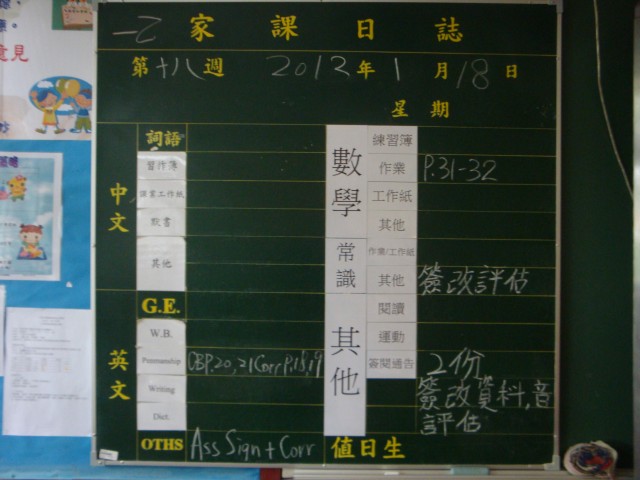 一乙 家課日誌
第十八週 2012年1月18日
星期
中文
詞語
習作簿
課業工作紙
默書
其他
英文
G.E.
W.B.
Penmanship OBP.20,21 Corr P.18,19
Writing
Dict.
OTHS Ass Sign + Corr
數學
練習簿
作業 P.31-32
工作紙
其他
常識
作業/工作紙
其他 簽改評估
其他
閱讀
運動
簽閱通告 2份
簽改資料,音
評估
值日生
意見